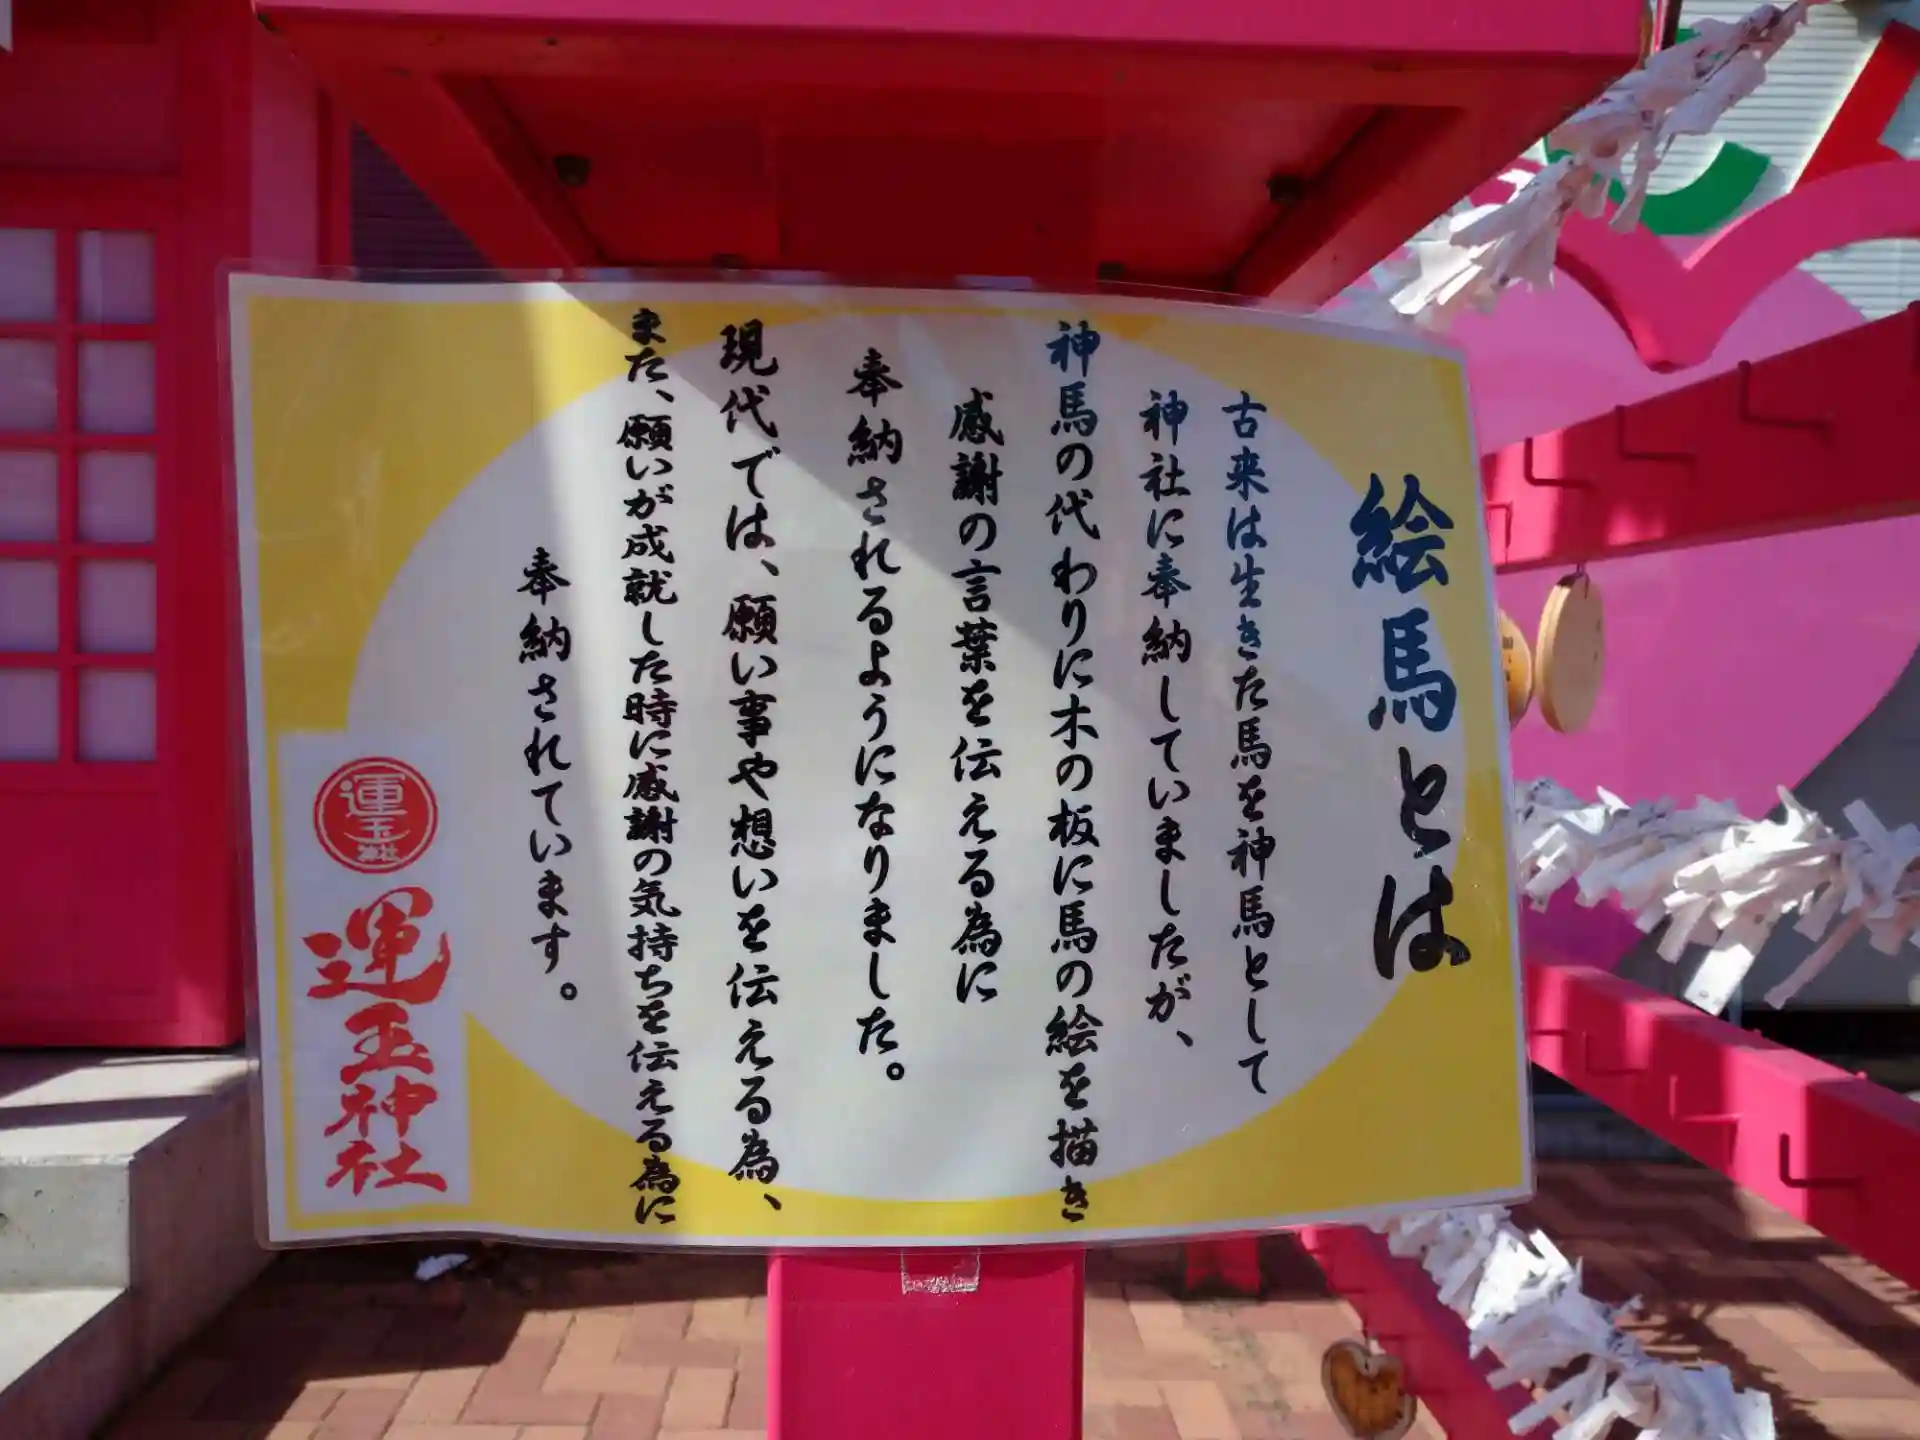 絵馬とは
古来は生きた馬を神馬として
神社に奉納していましたが、
神馬の代わりに木の板に馬の絵を描き
感謝の言葉を伝える為に
奉納されるようになりました。
現代では、願い事や想いを伝える為、
また、願いが成就した時に感謝の気持ちを伝える為に
奉納されています。
運玉神社
運玉神社